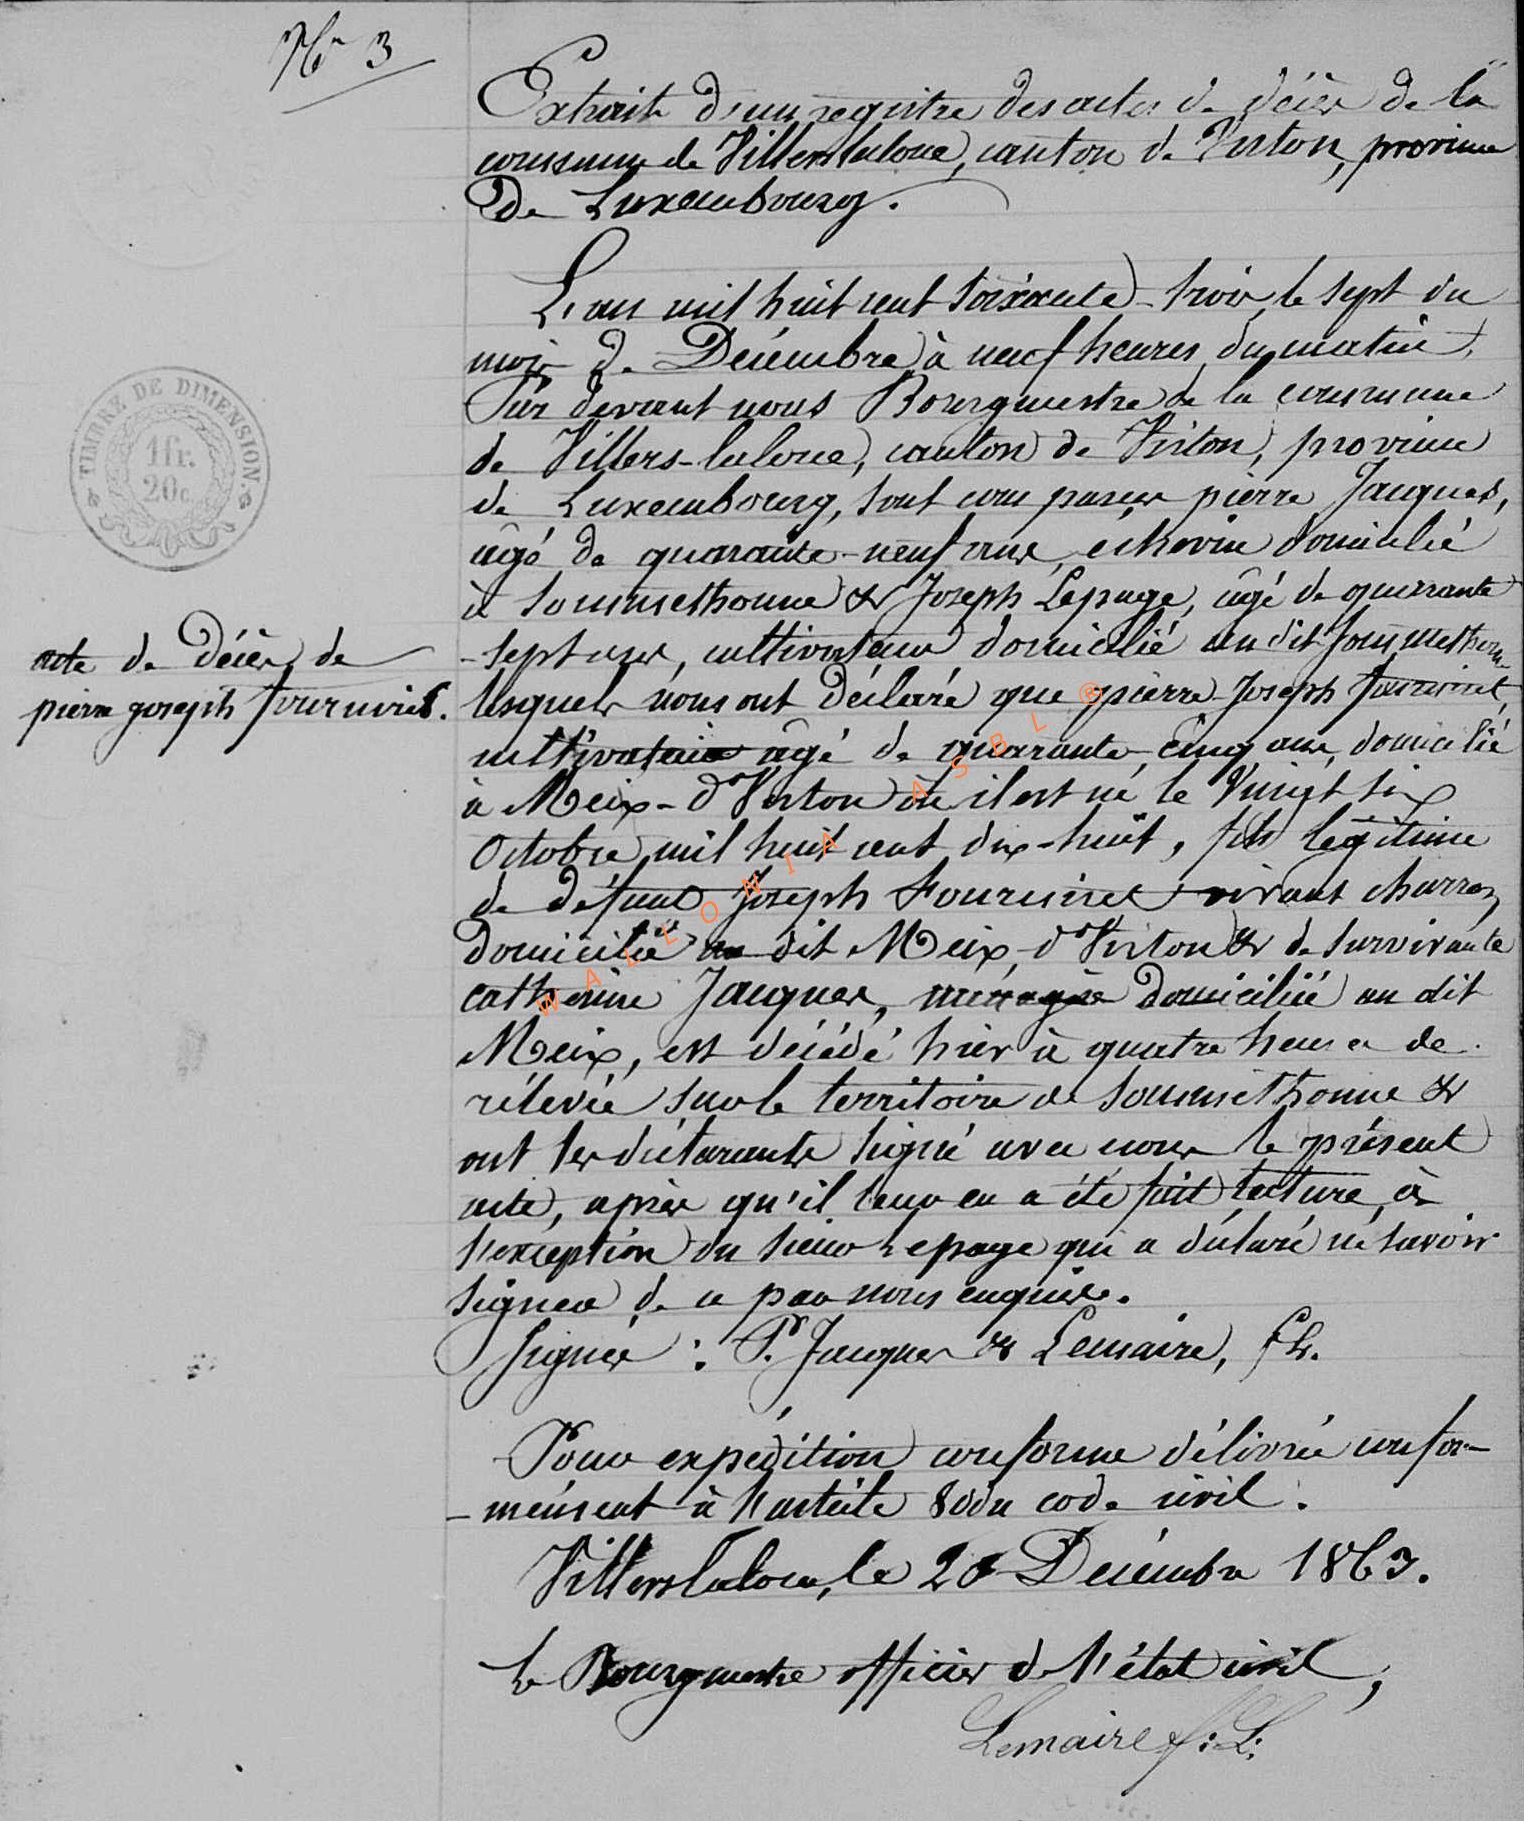 N° 3
Extrait d'un registre des actes de décès de la
commune de Villers laloue, canton de Virton, province
De Luxembourg.
L'an mil huit cent soixante-trois, le sept du
mois de Décembre à neuf heures du matin,
Par devant nous Bourgmestre de la commune
de Villers-laloue, canton de Virton, province
de Luxembourg, sont comparus pierre Jacques,
âgé de quarante-neuf ans, échevin domicilié
à Sommethonne & Joseph Lepage, âgé de quarante
-sept ans, cultivateur domicilié au dit Sommethonne
lesquels nous ont déclaré que pierre Joseph Fourniret,
cultivateur âgé de quarante-cinq ans, domicilié
à Meix-dt Virton où il est né le Vingt six
Octobre mil huit cent dix-huit, fils légitime
de défunt Joseph Fourniret vivant charron
Domicilié au dit Meix-dt Virton & de survivante
catherine Jacques, ménagère domiciliée au dit
Meix, est décédé hier à quatre heures de
rélevée sur le territoire de Sommethonne &
ont les déclarants signé avec nous le présent
acte, après qu'il leur en a été fait lecture, à
l'exception du sieur Lepage qui a déclaré né savoir
signer de ce par nous enquis.
Signés : P. Jacques & Lemaire, fL.
Pour expédition conforme délivrée confor-
-mément à l'article 80 du code civil.
Villers laloue, le 20 Décembre 1863.
le Bourgmestre officier de l'état civil,
Lemaire f:L:
acte de Décès de
pierre joseph Fourniret.
TIMBRE DE DIMENSION
1fr.
20c.
WALLONIA ASBL ®